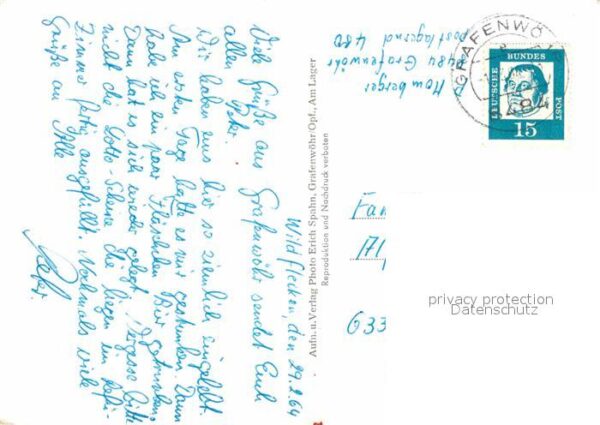 Wildflecken, den 29.2.64
Viele Grüße aus Grafenwöhr sendet Euch
allen Peter.
Wir haben uns hier so ziemlich eingelebt.
Am ersten Tage hatte es mir gestunken. Dann
habe ich ein paar Fläschchen Bier getrunken.
Dann hat es sich wieder gelegt. Vergesse bitte
nicht die Lotto-Scheine die liegen im
Zimmer fertig ausgefüllt. Nochmals viele
Grüße an Alle
Peter.
Aufn. u. Verlag Photo Erich Spahn, Grafenwöhr/Opf., Am Lager
Reproduktion und Nachdruck verboten
Homberger
8484 Grafenwöhr
postlagernd 480
GRAFENWÖ
8484
DEUTSCHE
BUNDES
POST
15
Fam
171
633
privacy protection
Datenschutz